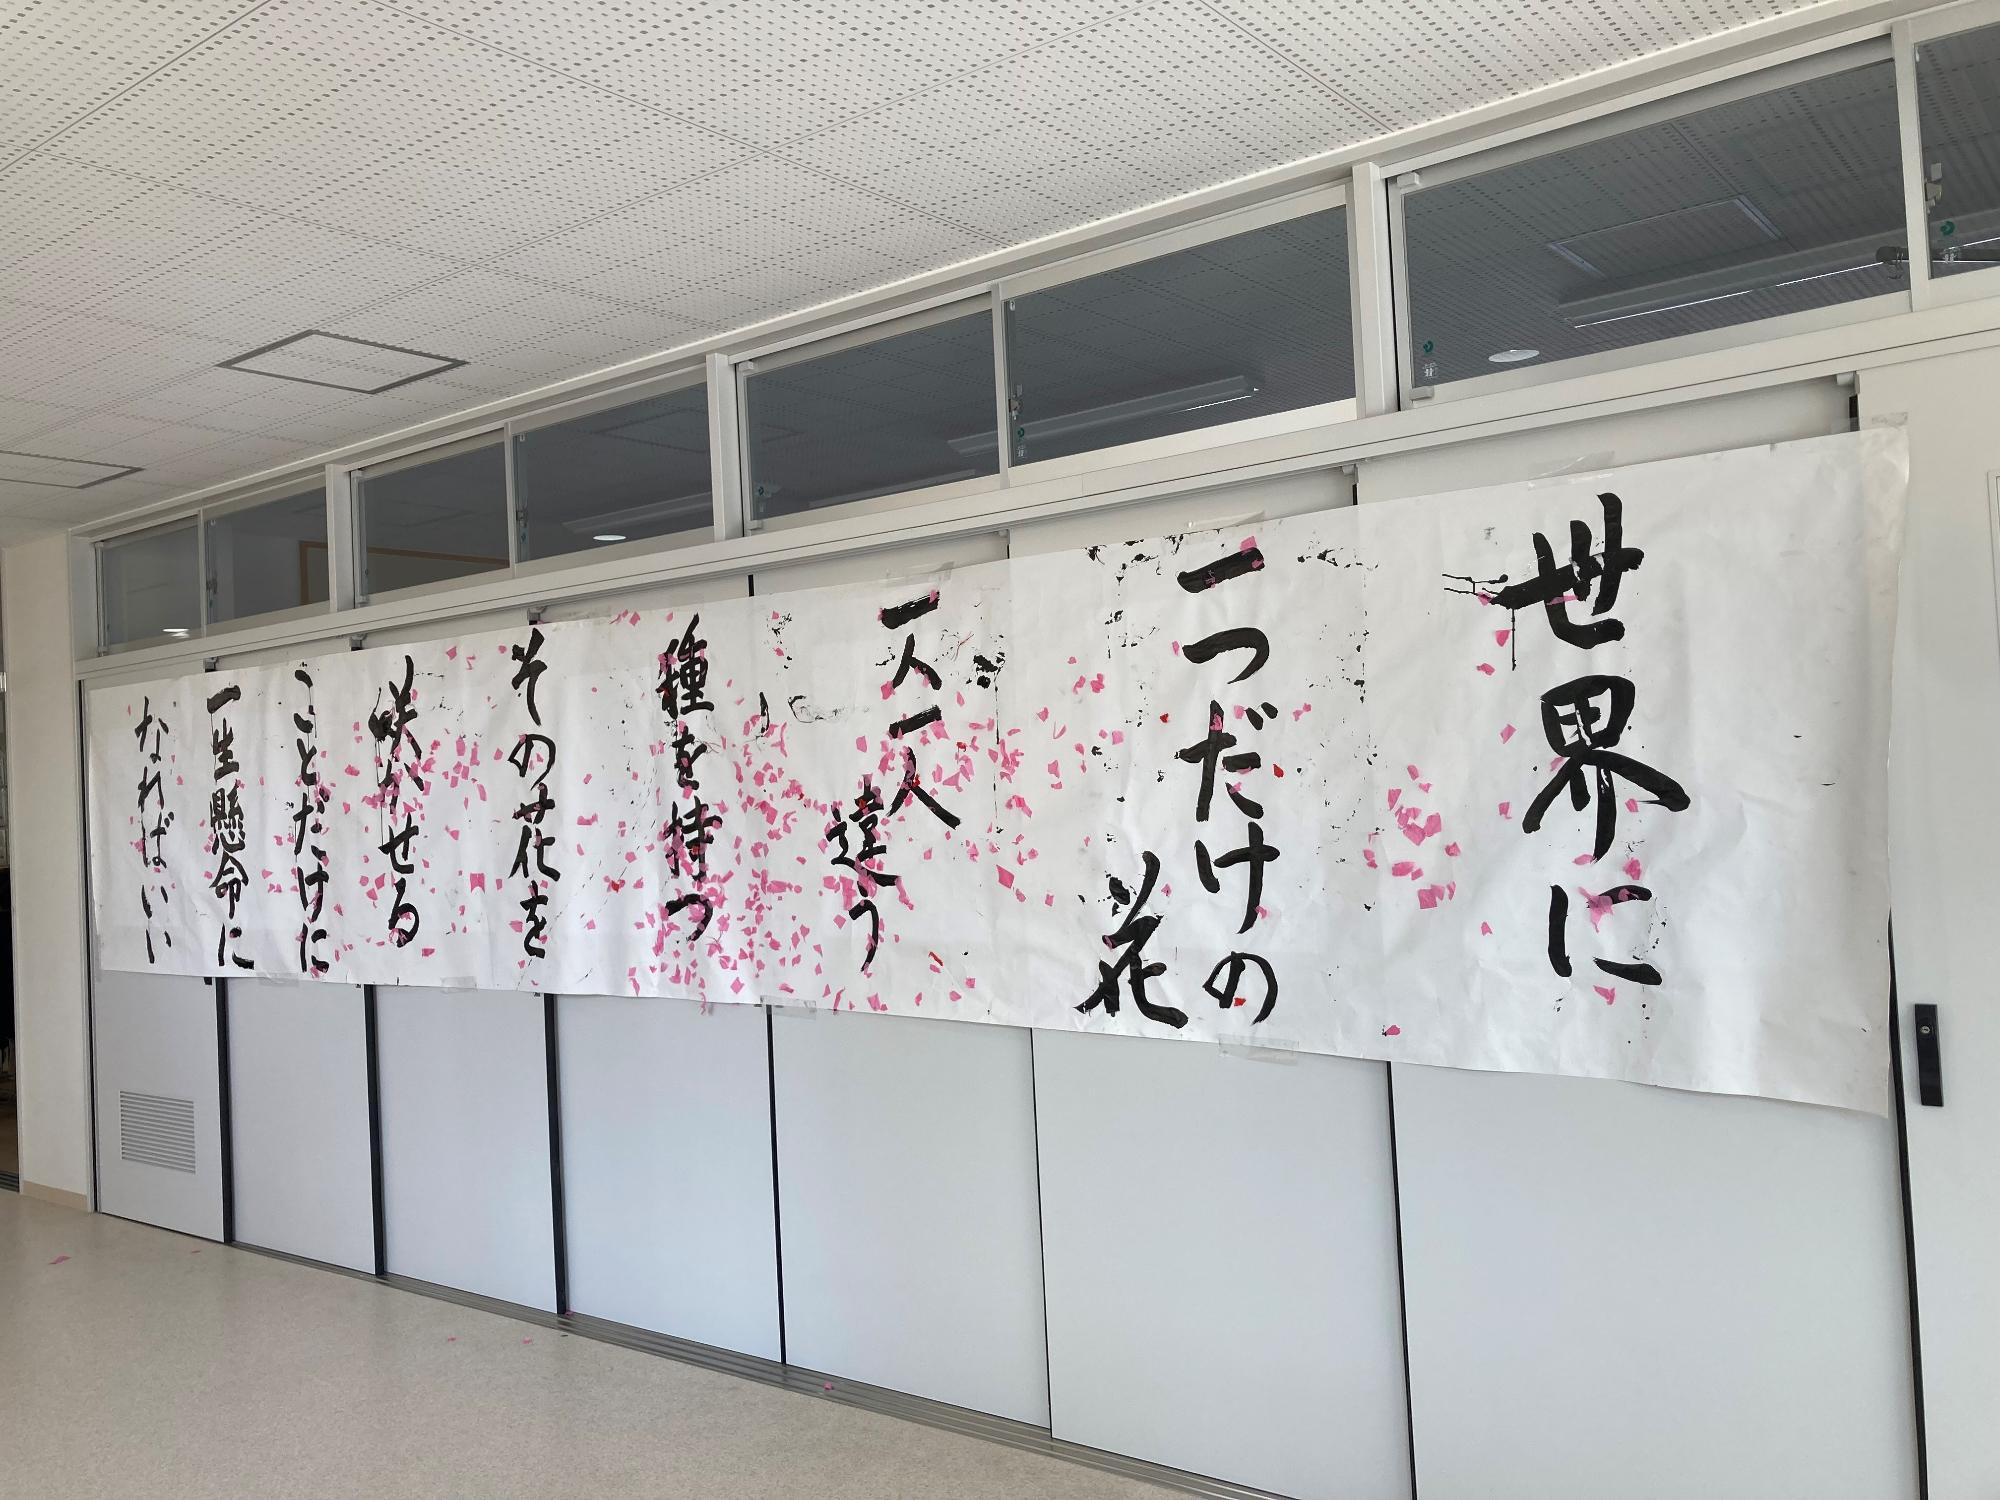 世界に
一つだけの
花
一人一人
違う
種を持つ
その花を
咲かせる
ことだけに
一生懸命に
なればいい